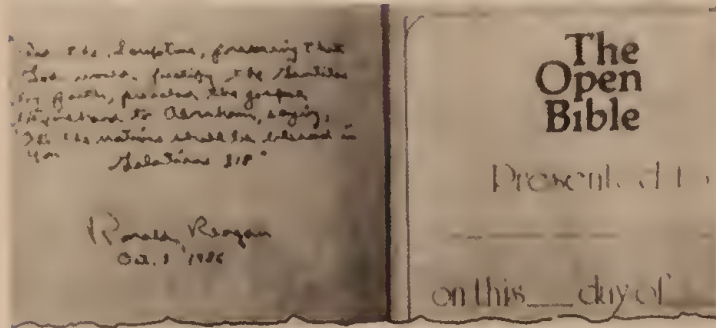 "And the Scripture, foreseeing that
God would justify the Gentiles
by faith, preached the gospel
beforehand to Abraham, saying,
'All the nations shall be blessed in
you'
Galatians 3:8"
Ronald Reagan
Oct. 3 1986
The
Open
Bible
Presented to
on this___day of